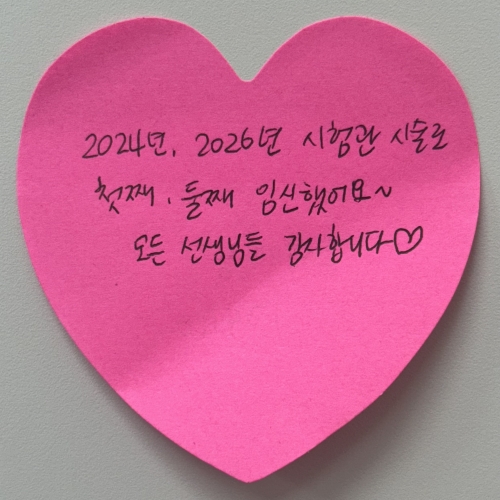 2024년, 2026년 시험관 시술로
첫째, 둘째 임신했어요~
모든 선생님들 감사합니다♡